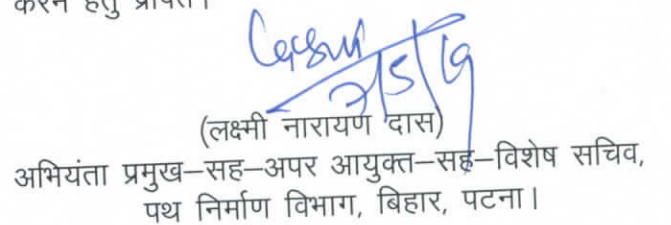 करने हेतु प्रेषित।
(लक्ष्मी नारायण दास)
अभियंता प्रमुख–सह–अपर आयुक्त–सह–विशेष सचिव,
पथ निर्माण विभाग, बिहार, पटना।